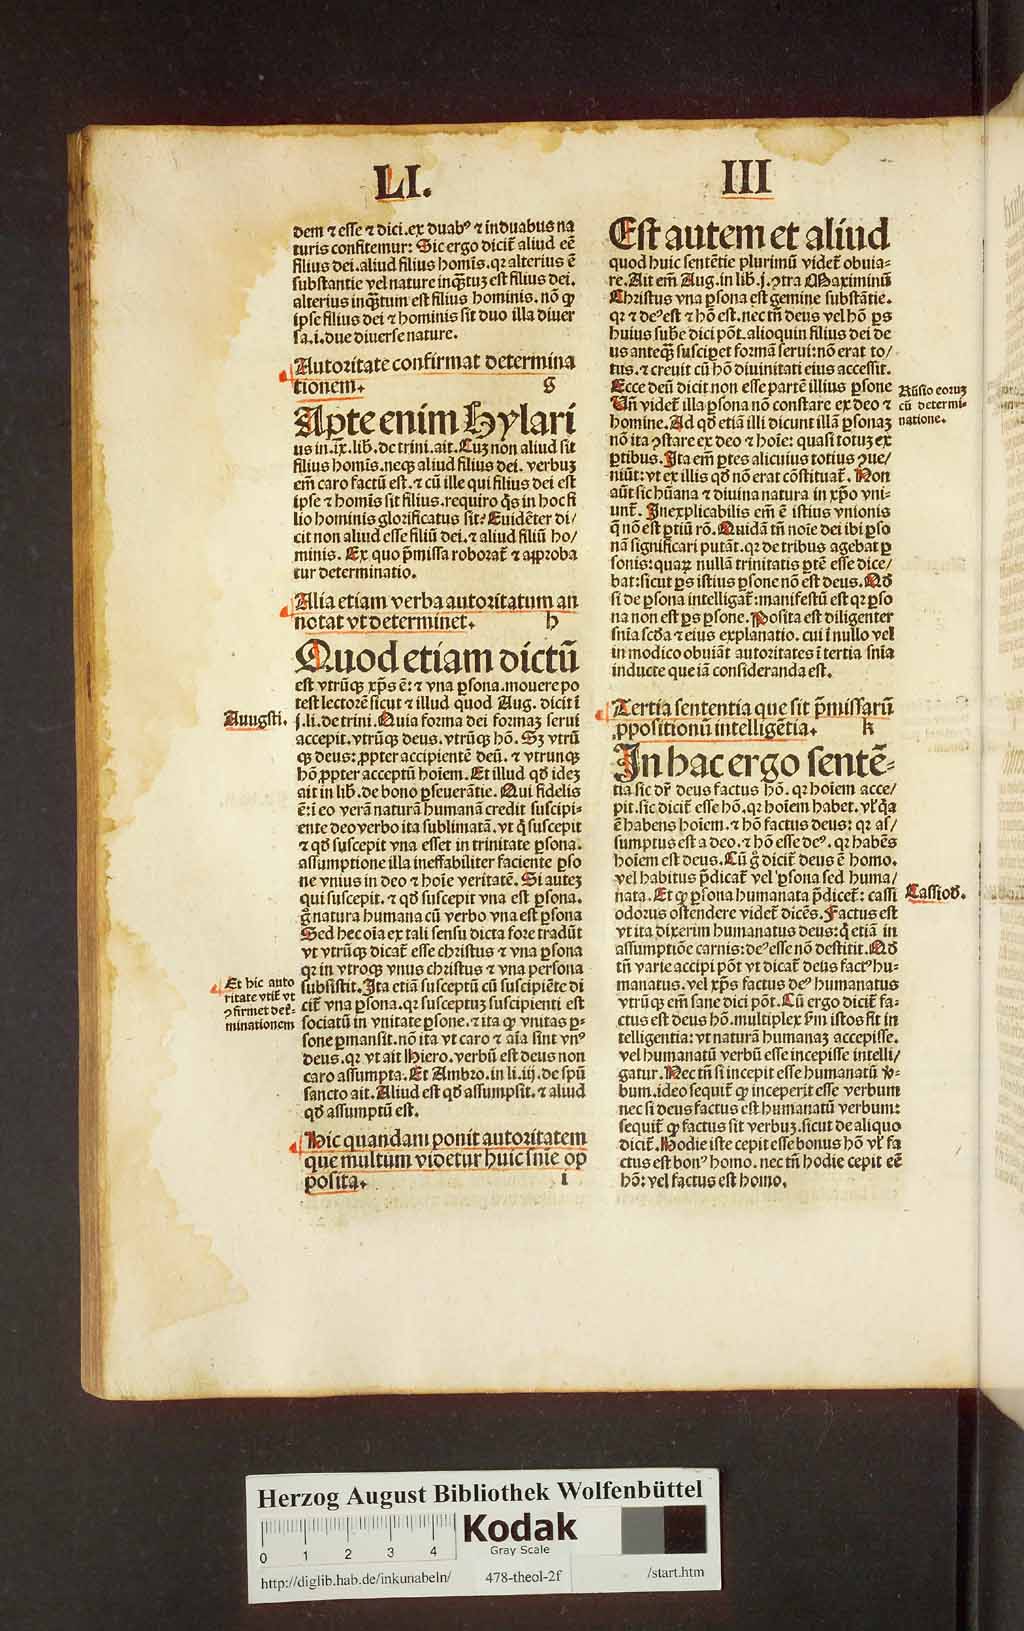 LI.
III
dem ⁊ esse ⁊ dici. ex duabꝰ ⁊ in duabus na
turis confitemur: Sic ergo dicit̃ aliud eẽ
filius dei. aliud filius homĩs. qꝛ alterius ẽ
substantie vel nature inqᷓtuꝫ est filius dei.
alterius inqᷓtum est filius hominis. nõ ꝙ
ipse filius dei ⁊ hominis sit duo illa diuer
sa. i. due diuerse nature.
Autoritate confirmat determina
tionem. g
Apte enim Hylari
us in .ix. lib̃. de trini. ait. Cuꝫ non aliud sit
filius homĩs. neqꝫ aliud filius dei. verbuꝫ
em̃ caro factũ est. ⁊ cũ ille qui filius dei est
ipse ⁊ homĩs sit filius. requiro q̃s in hoc fi
lio hominis glorificatus sit? Euidẽter di/
cit non aliud esse filiũ dei. ⁊ aliud filiũ ho/
minis. Ex quo p̃missa roborat̃ ⁊ approba
tur determinatio.
Alia etiam verba autoritatum an
notat vt determinet. h
Quod etiam dictũ
est vtrũqꝫ xp̃s ẽ: ⁊ vna ꝑsona. mouere po
test lectorẽ sicut ⁊ illud quod Aug. dicit ĩ
j. li. de trini. Quia forma dei formaꝫ serui
accepit. vtrũqꝫ deus. vtrũqꝫ hõ. Sꝫ vtrũ
qꝫ deus: ꝓpter accipientẽ deũ. ⁊ vtrunqꝫ
hõ ꝓpter acceptũ hoĩem. Et illud qd̃ ideꝫ
ait in lib̃. de bono ꝑseuerãtie. Qui fidelis
ẽ: ĩ eo verã naturã humanã credit suscipi-
ente deo verbo ita sublimatã. vt q̃ suscepit
⁊ qd̃ suscepit vna esset in trinitate ꝑsona.
assumptione illa ineffabiliter faciente ꝑso
ne vnius in deo ⁊ hoĩe veritatẽ. Si auteꝫ
qui suscepit. ⁊ qd̃ suscepit vna est ꝑsona.
g̃ natura humana cũ verbo vna est ꝑsona
Sed hec oĩa ex tali sensu dicta fore tradũt
vt vtrũqꝫ dicat̃ esse christus ⁊ vna ꝑsona
qꝛ in vtroqꝫ vnus christus ⁊ vna persona
subsistit. Ita etiã susceptũ cũ suscipiẽte di
cit̃ vna ꝑsona. qꝛ susceptuꝫ suscipienti est
sociatũ in vnitate ꝑsone. ⁊ ita ꝙ vnitas ꝑ-
sone ꝑmansit. nõ ita vt caro ⁊ aĩa sint vnꝰ
deus. qꝛ vt ait Hiero. verbũ est deus non
caro assumpta. Et Ambro. in li. iij. de spũ
sancto ait. Aliud est qd̃ assumpsit. ⁊ aliud
qd̃ assumptũ est.
Hic quandam ponit autoritatem
que multum videtur huic sñie op
posita. i
Auugsti.
Et hic auto
ritate vtit̃ vt
ꝯfirmet det̃-
minationem
Est autem et aliud
quod huic sentẽtie plurimũ videt̃ obuia-
re. Ait em̃ Aug. in lib̃. j. ꝯtra Maximinũ
Christus vna ꝑsona est gemine substãtie.
qꝛ ⁊ deꝰ est ⁊ hõ est. nec tñ deus vel hõ ꝑs
huius sub̃e dici põt. alioquin filius dei de
us anteqᷓ susciꝑet formã serui: nõ erat to/
tus. ⁊ creuit cũ hõ diuinitati eius accessit.
Ecce deũ dicit non esse partẽ illius ꝑsone
Vñ videt̃ illa ꝑsona nõ constare ex deo ⁊
homine. Ad qd̃ etiã illi dicunt illã ꝑsonaꝫ
nõ ita ꝯstare ex deo ⁊ hoĩe: quasi totuꝫ ex
ꝑtibus. Ita em̃ ꝑtes alicuius totius ꝯue/
niũt: vt ex illis qd̃ nõ erat cõstituat̃. Non
aũt sic hũana ⁊ diuina natura in xp̃o vni-
unt̃. Inexplicabilis em̃ ẽ istius vnionis
q̃ nõ est ꝑtiũ rõ. Quidã tñ noĩe dei ibi ꝑso
nã significari putãt. qꝛ de tribus agebat ꝑ
sonis: quaꝝ nullã trinitatis ꝑtẽ esse dice/
bat: sicut ꝑs istius ꝑsone nõ est deus. Qd̃
si de ꝑsona intelligat̃: manifestũ est qꝛ ꝑso
na non est ꝑs ꝑsone. Posita est diligenter
sñia scd̃a ⁊ eius explanatio. cui ĩ nullo vel
in modico obuiãt autoritates ĩ tertia sñia
inducte que iã consideranda est.
Tertia sententia que sit p̃missarũ
ꝓpositionũ intelligẽtia. k
In hac ergo sentẽ-
tia sic dr̃ deus factus hõ. qꝛ hoĩem acce/
pit. sic dicit̃ esse hõ. qꝛ hoĩem habet. vl̃ q̃a
ẽ habens hoĩem. ⁊ hõ factus deus: qꝛ as/
sumptus est a deo. ⁊ hõ esse deꝰ. qꝛ habẽs
hoĩem est deus. Cũ g̃ dicit̃ deus ẽ homo.
vel habitus p̃dicat̃ vel ꝑsona sed huma/
nata. Et ꝙ ꝑsona humanata p̃dicet̃: cassi
odorus ostendere videt̃ dicẽs. Factus est
vt ita dixerim humanatus deus: q̃ etiã in
assumptiõe carnis: deꝰ esse nõ destitit. Qd̃
tñ varie accipi põt vt dicat̃ deus factꝰ hu-
manatus. vel xp̃s factus deꝰ humanatus
vtrũqꝫ em̃ sane dici põt. Cũ ergo dicit̃ fa-
ctus est deus hõ. multiplex s̃m istos fit in
telligentia: vt naturã humanaꝫ accepisse.
vel humanatũ verbũ esse incepisse intelli/
gatur. Nec tñ si incepit esse humanatũ v̾-
bum. ideo sequit̃ ꝙ inceperit esse verbum
nec si deus factus est humanatũ verbum:
sequit̃ ꝙ factus sit verbuꝫ. sicut de aliquo
dicit̃. Hodie iste cepit esse bonus hõ vl̃ fa
ctus est bonꝰ homo. nec tñ hodie cepit eẽ
hõ: vel factus est homo.
cũ determi-
natione.
Cassiod̃.
Herzog August Bibliothek Wolfenbüttel
0 1 2 3 4
Kodak
Gray Scale
http://diglib.hab.de/inkunabeln/ 478-theol-2f /start.htm